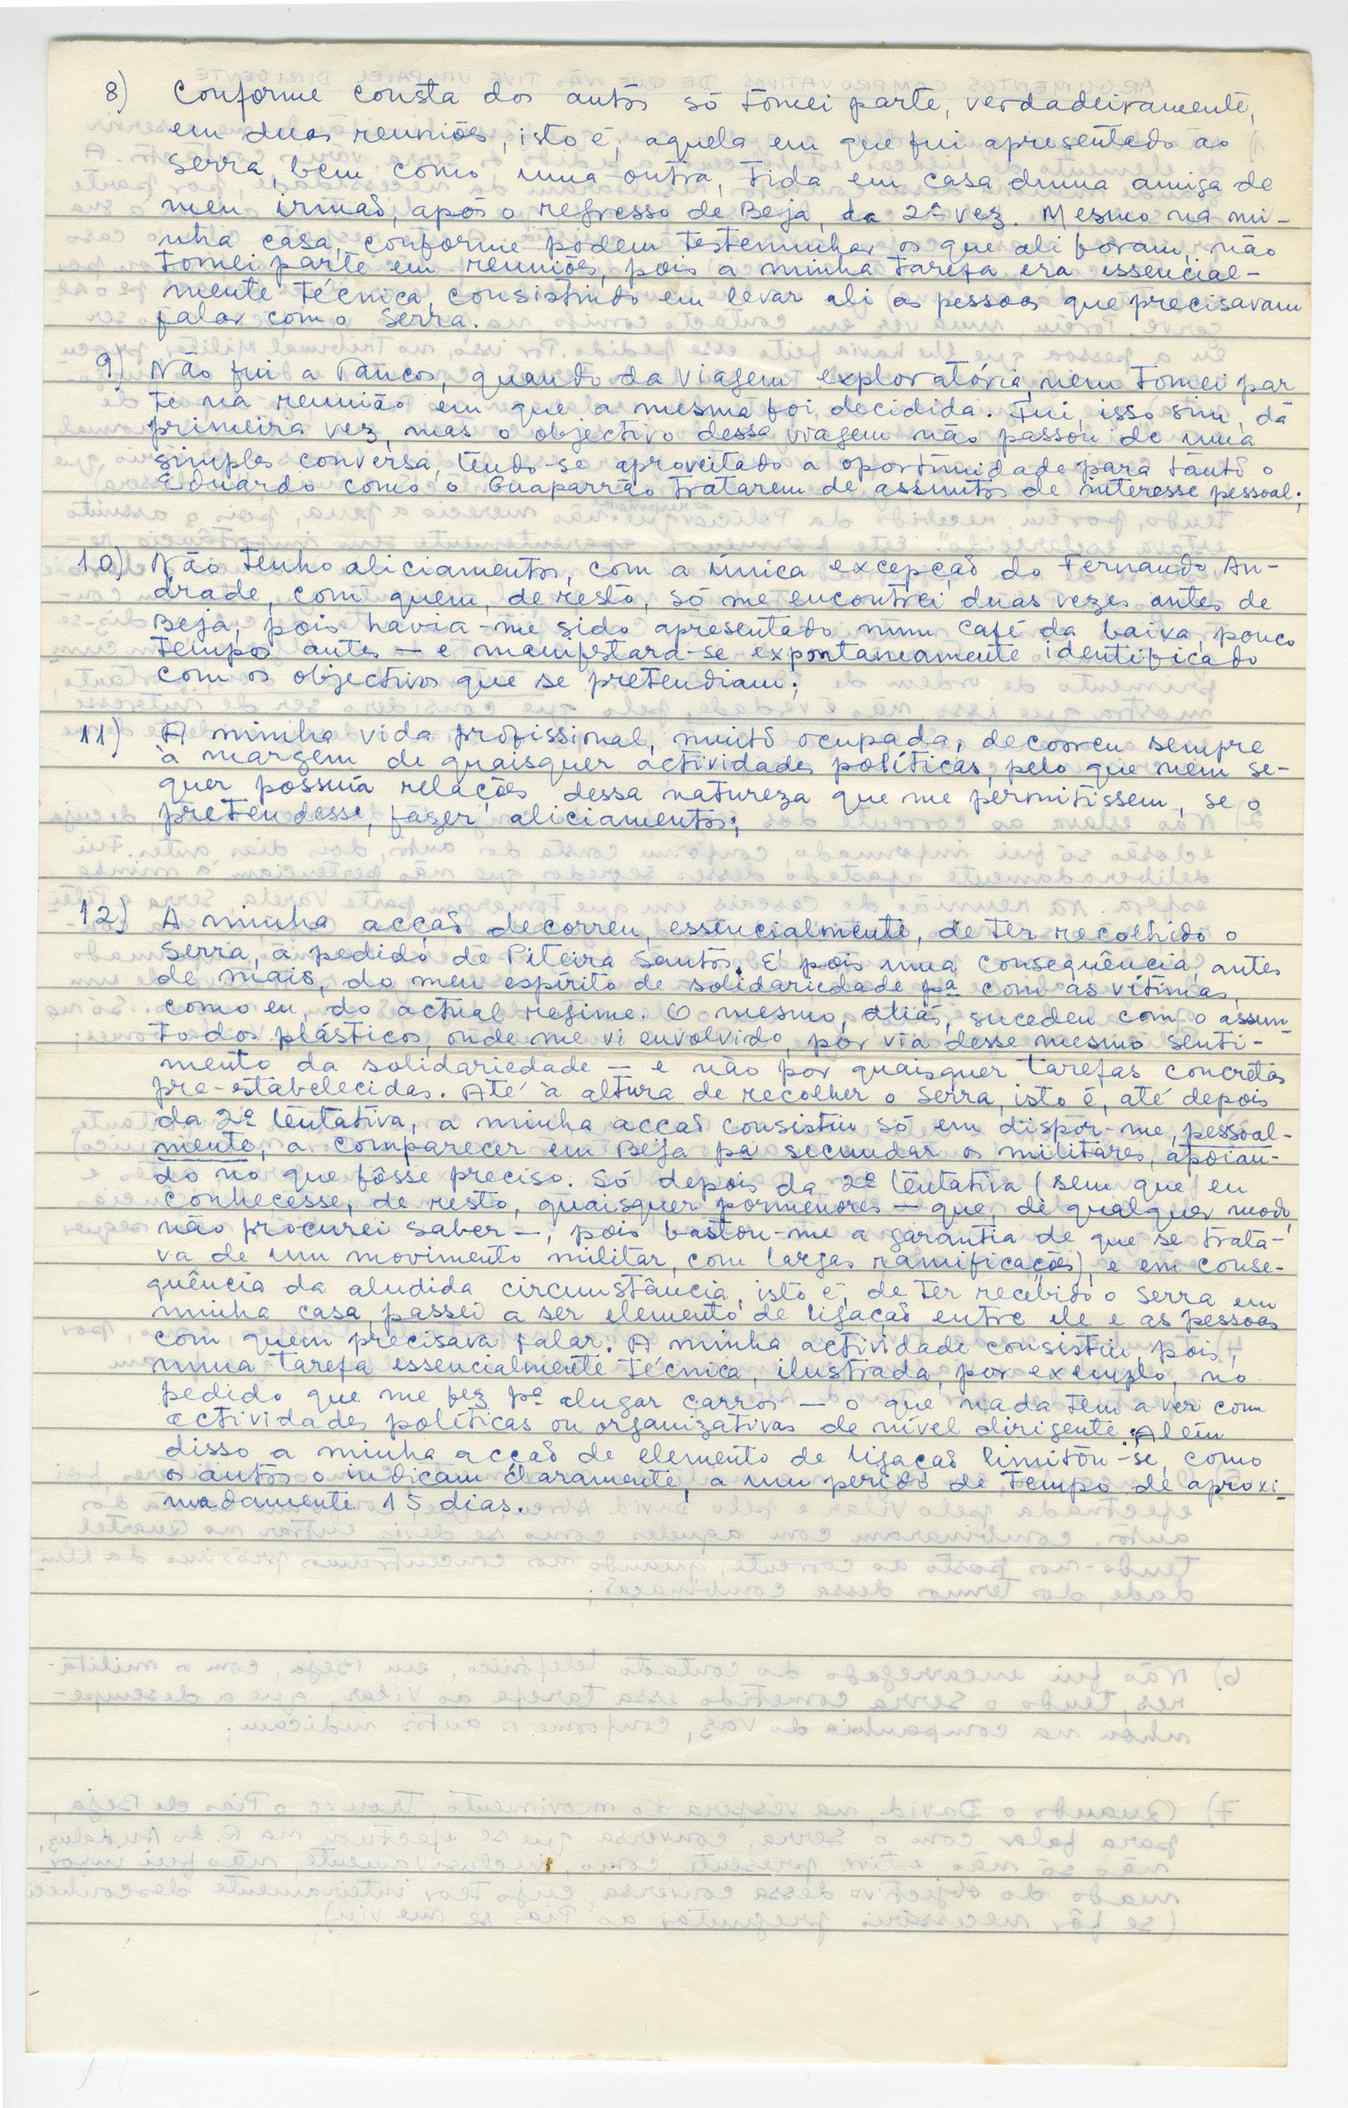 8) Conforme consta dos autos só tomei parte, verdadeiramente,
em duas reuniões, isto é, aquela em que fui apresentado ao
Serra, bem como uma outra, tida em casa duma amiga de
meu irmão, após o regresso de Beja, da 2ª vez. Mesmo na mi-
nha casa, conforme podem testemunhar os que ali foram, não
tomei parte em reuniões, pois a minha tarefa era essencial-
mente técnica, consistindo em levar ali as pessoas que precisavam
falar com o Serra.
9) Não fui a Tancos, quando da viagem exploratória, nem tomei par
te na reunião em que a mesma foi decidida. Fui, isso sim, da
primeira vez, mas o objectivo dessa viagem não passou de uma
simples conversa, tendo-se aproveitado a oportunidade para tanto o
Eduardo como o Guaparrão tratarem de assuntos de interesse pessoal;
10) Não tenho aliciamentos, com a única excepção do Fernando An-
drade, com quem, de resto, só me encontrei duas vezes antes de
Beja, pois havia-me sido apresentado num café da baixa, pouco
tempo antes — e manifestara-se expontaneamente identificado
com os objectivos que se pretendiam;
11) A minha vida profissional, muito ocupada, decorreu sempre
à margem de quaisquer actividades políticas, pelo que nem se-
quer possuía relações dessa natureza que me permitissem, se o
pretendesse, fazer aliciamentos;
12) A minha acção decorreu, essencialmente, de ter recolhido o
Serra, a pedido de Piteira Santos. É pois uma consequência, antes
de mais, do meu espírito de solidariedade pª com as vítimas,
como eu, do actual regime. O mesmo, aliás, sucedeu com o assun
to dos plásticos, onde me vi envolvido, por via desse mesmo senti-
mento da solidariedade — e não por quaisquer tarefas concretas
pre-estabelecidas. Até à altura de recolher o Serra, isto é, até depois
da 2ª tentativa, a minha acção consistiu só em dispôr-me, pessoal-
mente, a comparecer em Beja pª secundar os militares, apoian-
do no que fôsse preciso. Só depois da 2ª tentativa (sem que eu
conhecesse, de resto, quaisquer pormenores — que, de qualquer modo,
não procurei saber —, pois bastou-me a garantia de que se trata-
va de um movimento militar, com largas ramificações), e em conse-
quência da aludida circunstância, isto é, de ter recebido o Serra em
minha casa, passei a ser elemento de ligação entre ele e as pessoas
com quem precisava falar. A minha actividade consistiu pois,
numa tarefa essencialmente técnica, ilustrada, por exemplo, no
pedido que me fez pª alugar carros — o que nada tem a ver com
actividades políticas ou organizativas de nível dirigente. Além
disso a minha acção de elemento de ligação limitou-se, como
os autos o indicam claramente, a um período de tempo de aproxi-
madamente 15 dias.